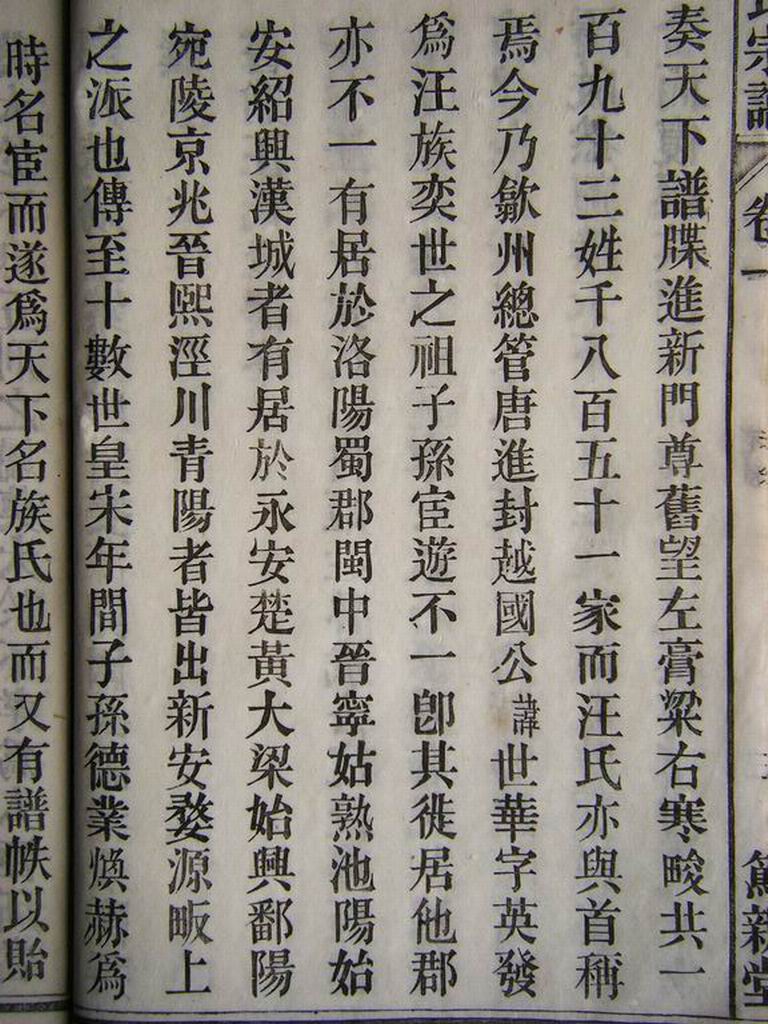 氏宗譜 卷一 篤親堂
奏天下譜牒進新門尊舊望左膏粱右寒畯共一
百九十三姓千八百五十一家而汪氏亦與首稱
焉今乃歙州總管唐進封越國公諱世華字英發
爲汪族奕世之祖子孫宦遊不一卽其徙居他郡
亦不一有居於洛陽蜀郡閩中晉寧姑熟池陽始
安紹興漢城者有居於永安楚黃大梁始興鄱陽
宛陵京兆晉熙涇川青陽者皆出新安婺源畈上
之派也傳至十數世皇宋年間子孫德業煥赫爲
時名宦而遂爲天下名族氏也而又有譜帙以貽